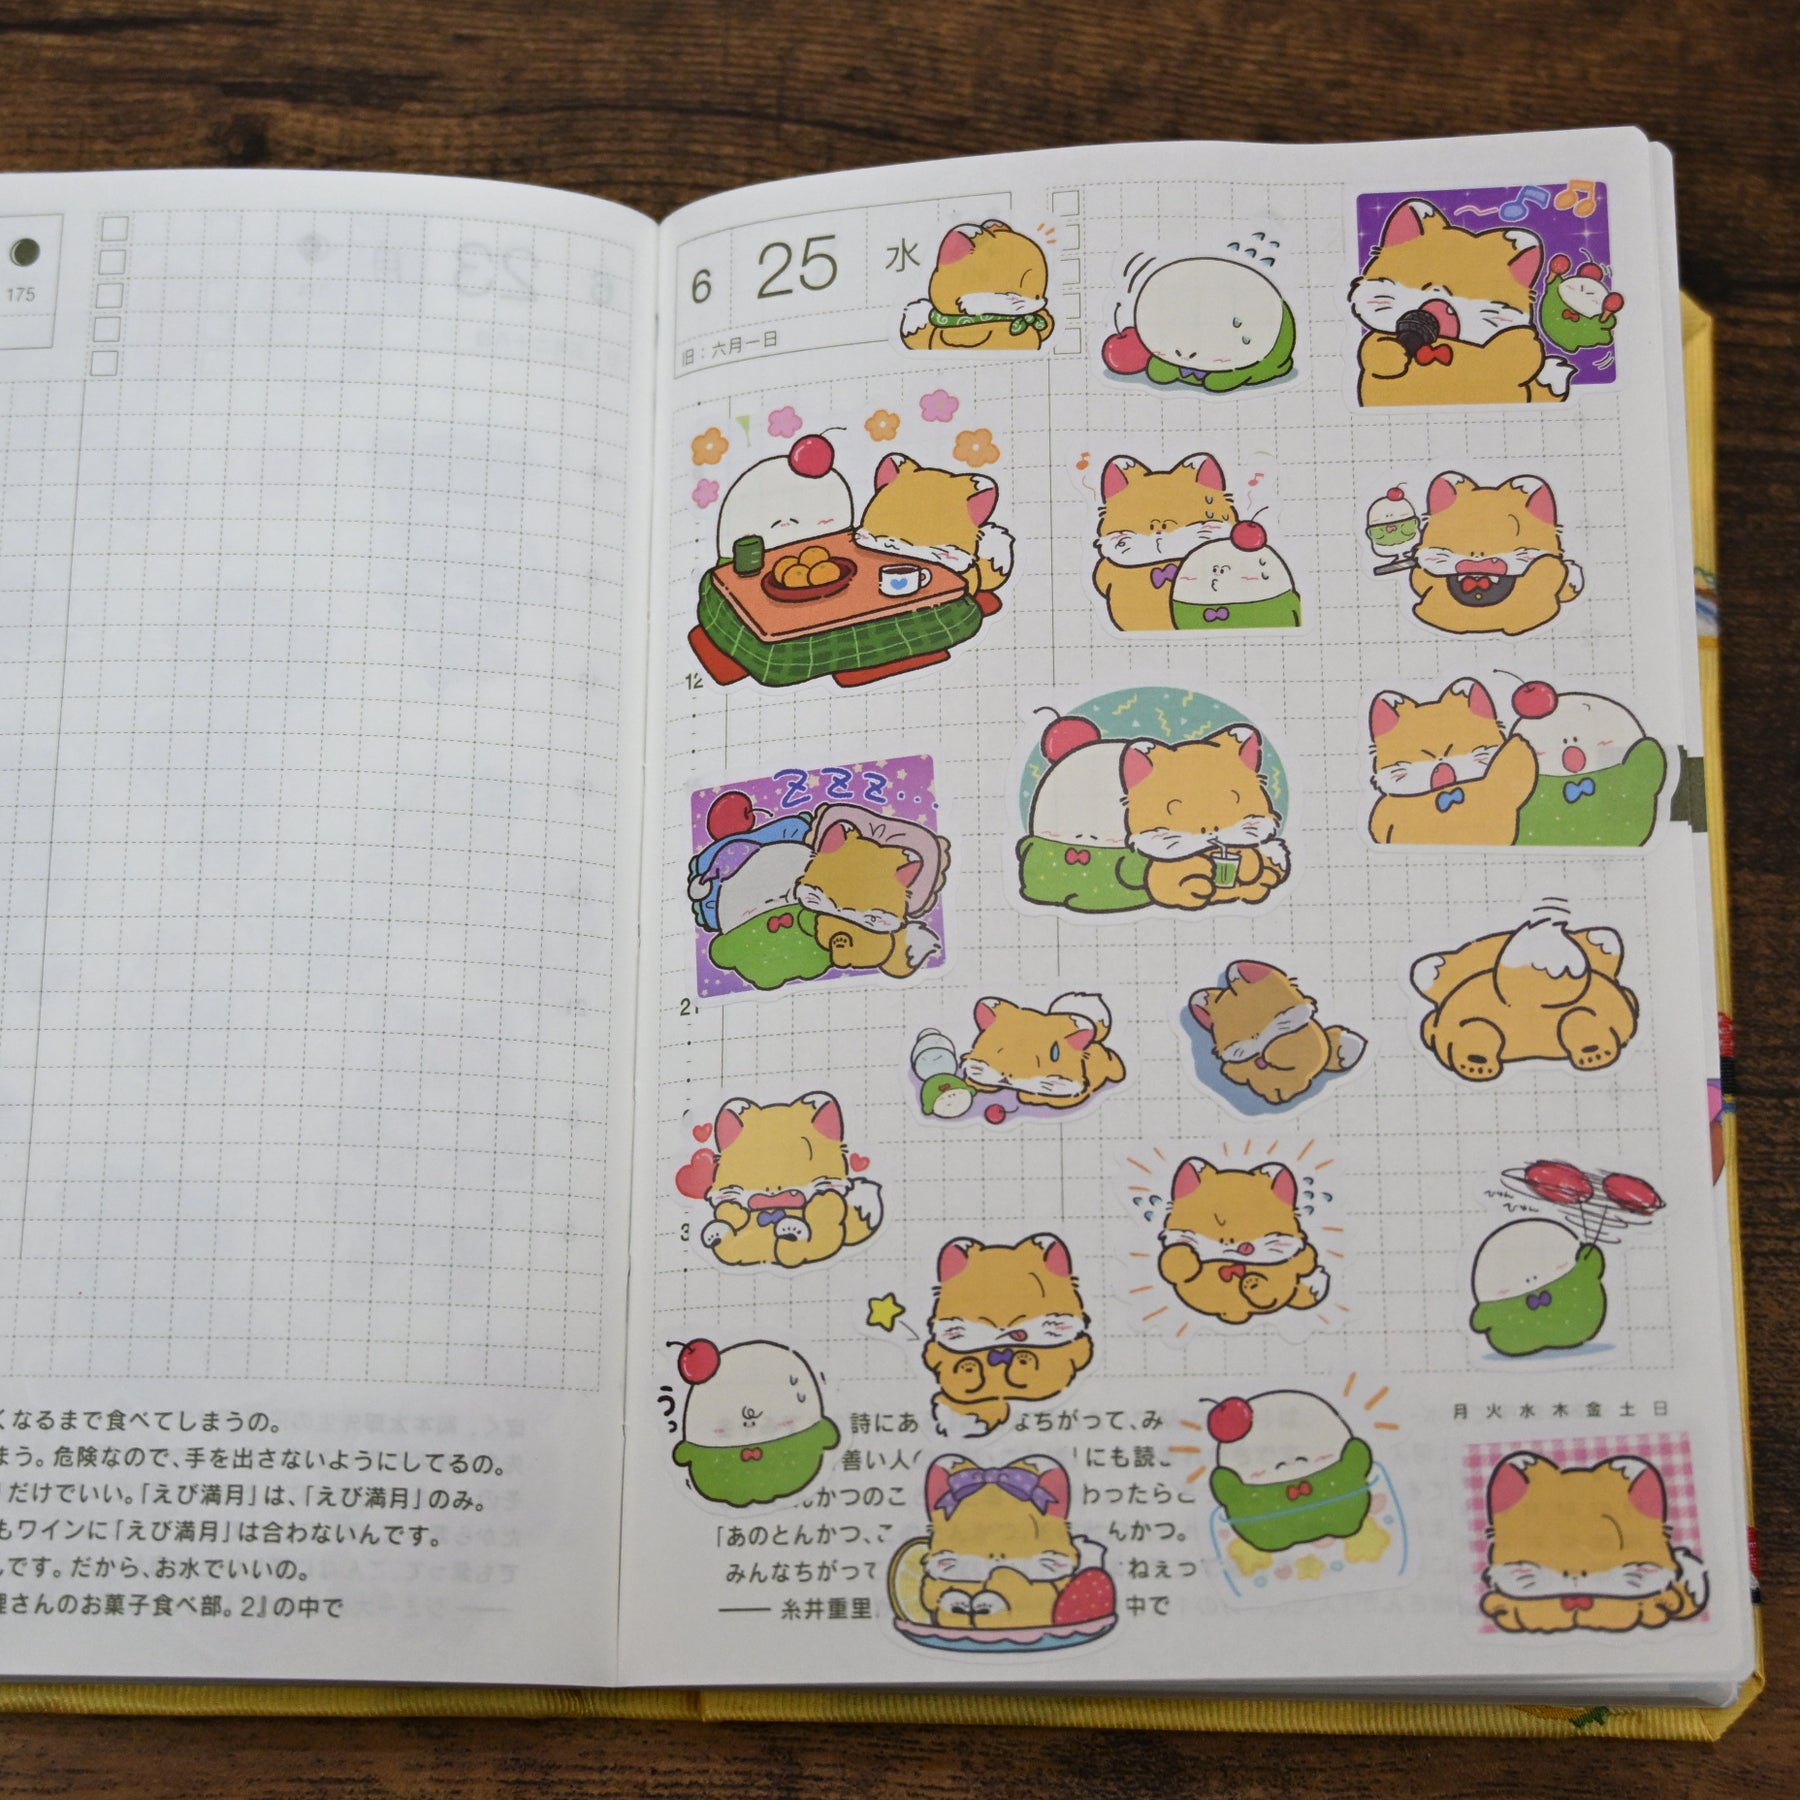 175
くなるまで食べてしまうの。
まう。危険なので、手を出さないようにしてるの。
だけでいい。「えび満月」は、「えび満月」のみ。
もワインに「えび満月」は合わないんです。
んです。だから、お水でいいの。
理さんのお菓子食べ部。2』の中で
6 25 水
旧：六月一日
12
ZZZ...
2
3
びゅん
びゅん
うっ
詩にあ なちがって、み
善い人 にも読
んかつのこ わったらこ
「あのとんかつ、こ んかつ。
みんなちがって ねぇっ
── 糸井重里 中で
月 火 水 木 金 土 日